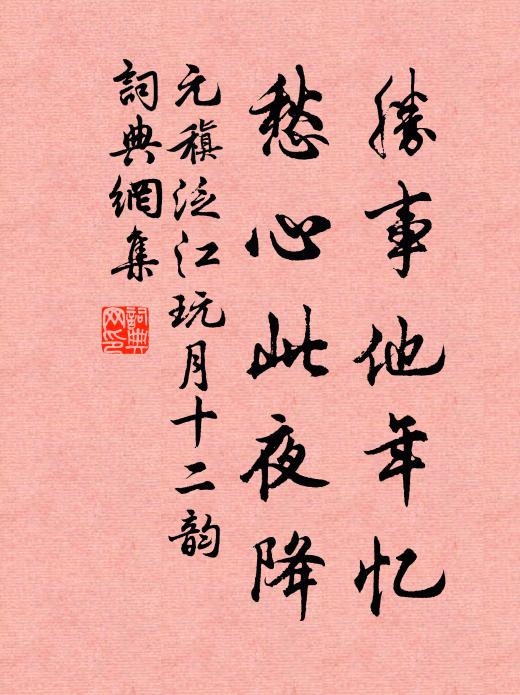 勝事他年忆
愁心此夜降
元稹泛江玩月十二韵
詞典網集
詞典网印